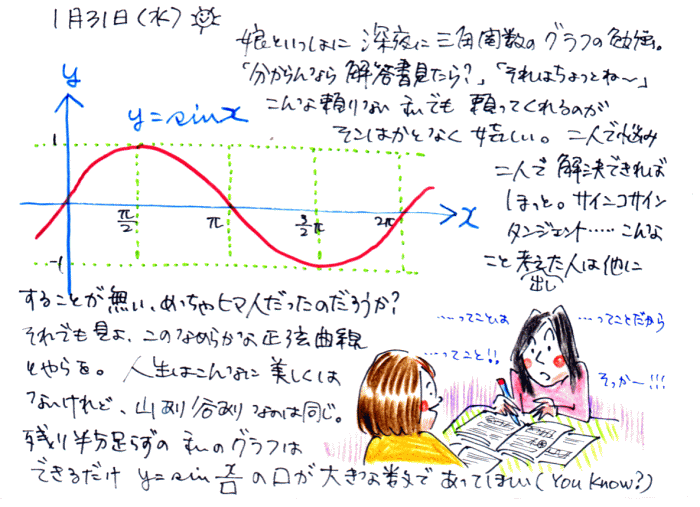 1月31日(水)
娘といっしょに 深夜に 三角関数の グラフの 勉強。
「分からんなら 解答書見たら?」「それはちょっとね〜」
こんな頼りない 私でも 頼ってくれるのが
そこはかとなく 嬉しい。 二人で悩み
二人で 解決できれば
ほっと。 サインコサイン
タンジェント…… こんな
こと 考えた人は他に
出し
することが無い、めっちゃヒマ人だったのだろうか?
それでも見よ、このなめらかな正弦曲線
とやらを。 人生はこんなに 美しくは
ないけれど、山あり谷あり なのは同じ。
残り半分足らずの 私のグラフは
できるだけ y=sin x/□ の□が 大きな数で あってほしい(You Know?)
y
y=sinx
1
π/2
π
3/2π
2π
x
-1
…ってことは
…ってことだから
…ってこと!!
そっか〜!!!